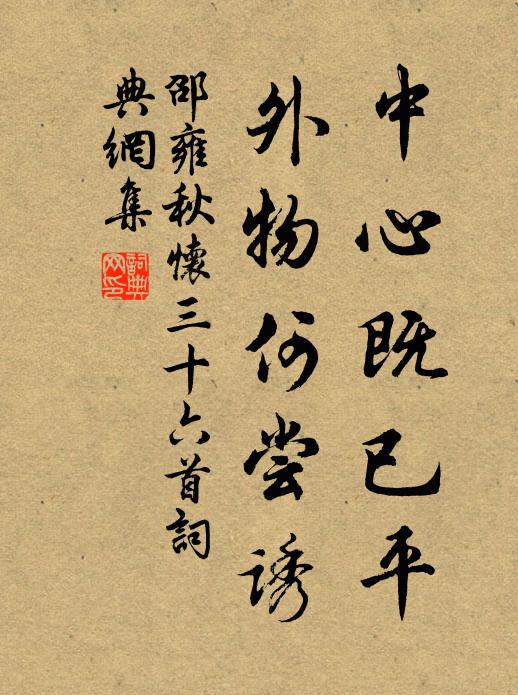 中心既已平
外物何尝诱
邵雍秋懷三十六首詞
典網集
詞典網印